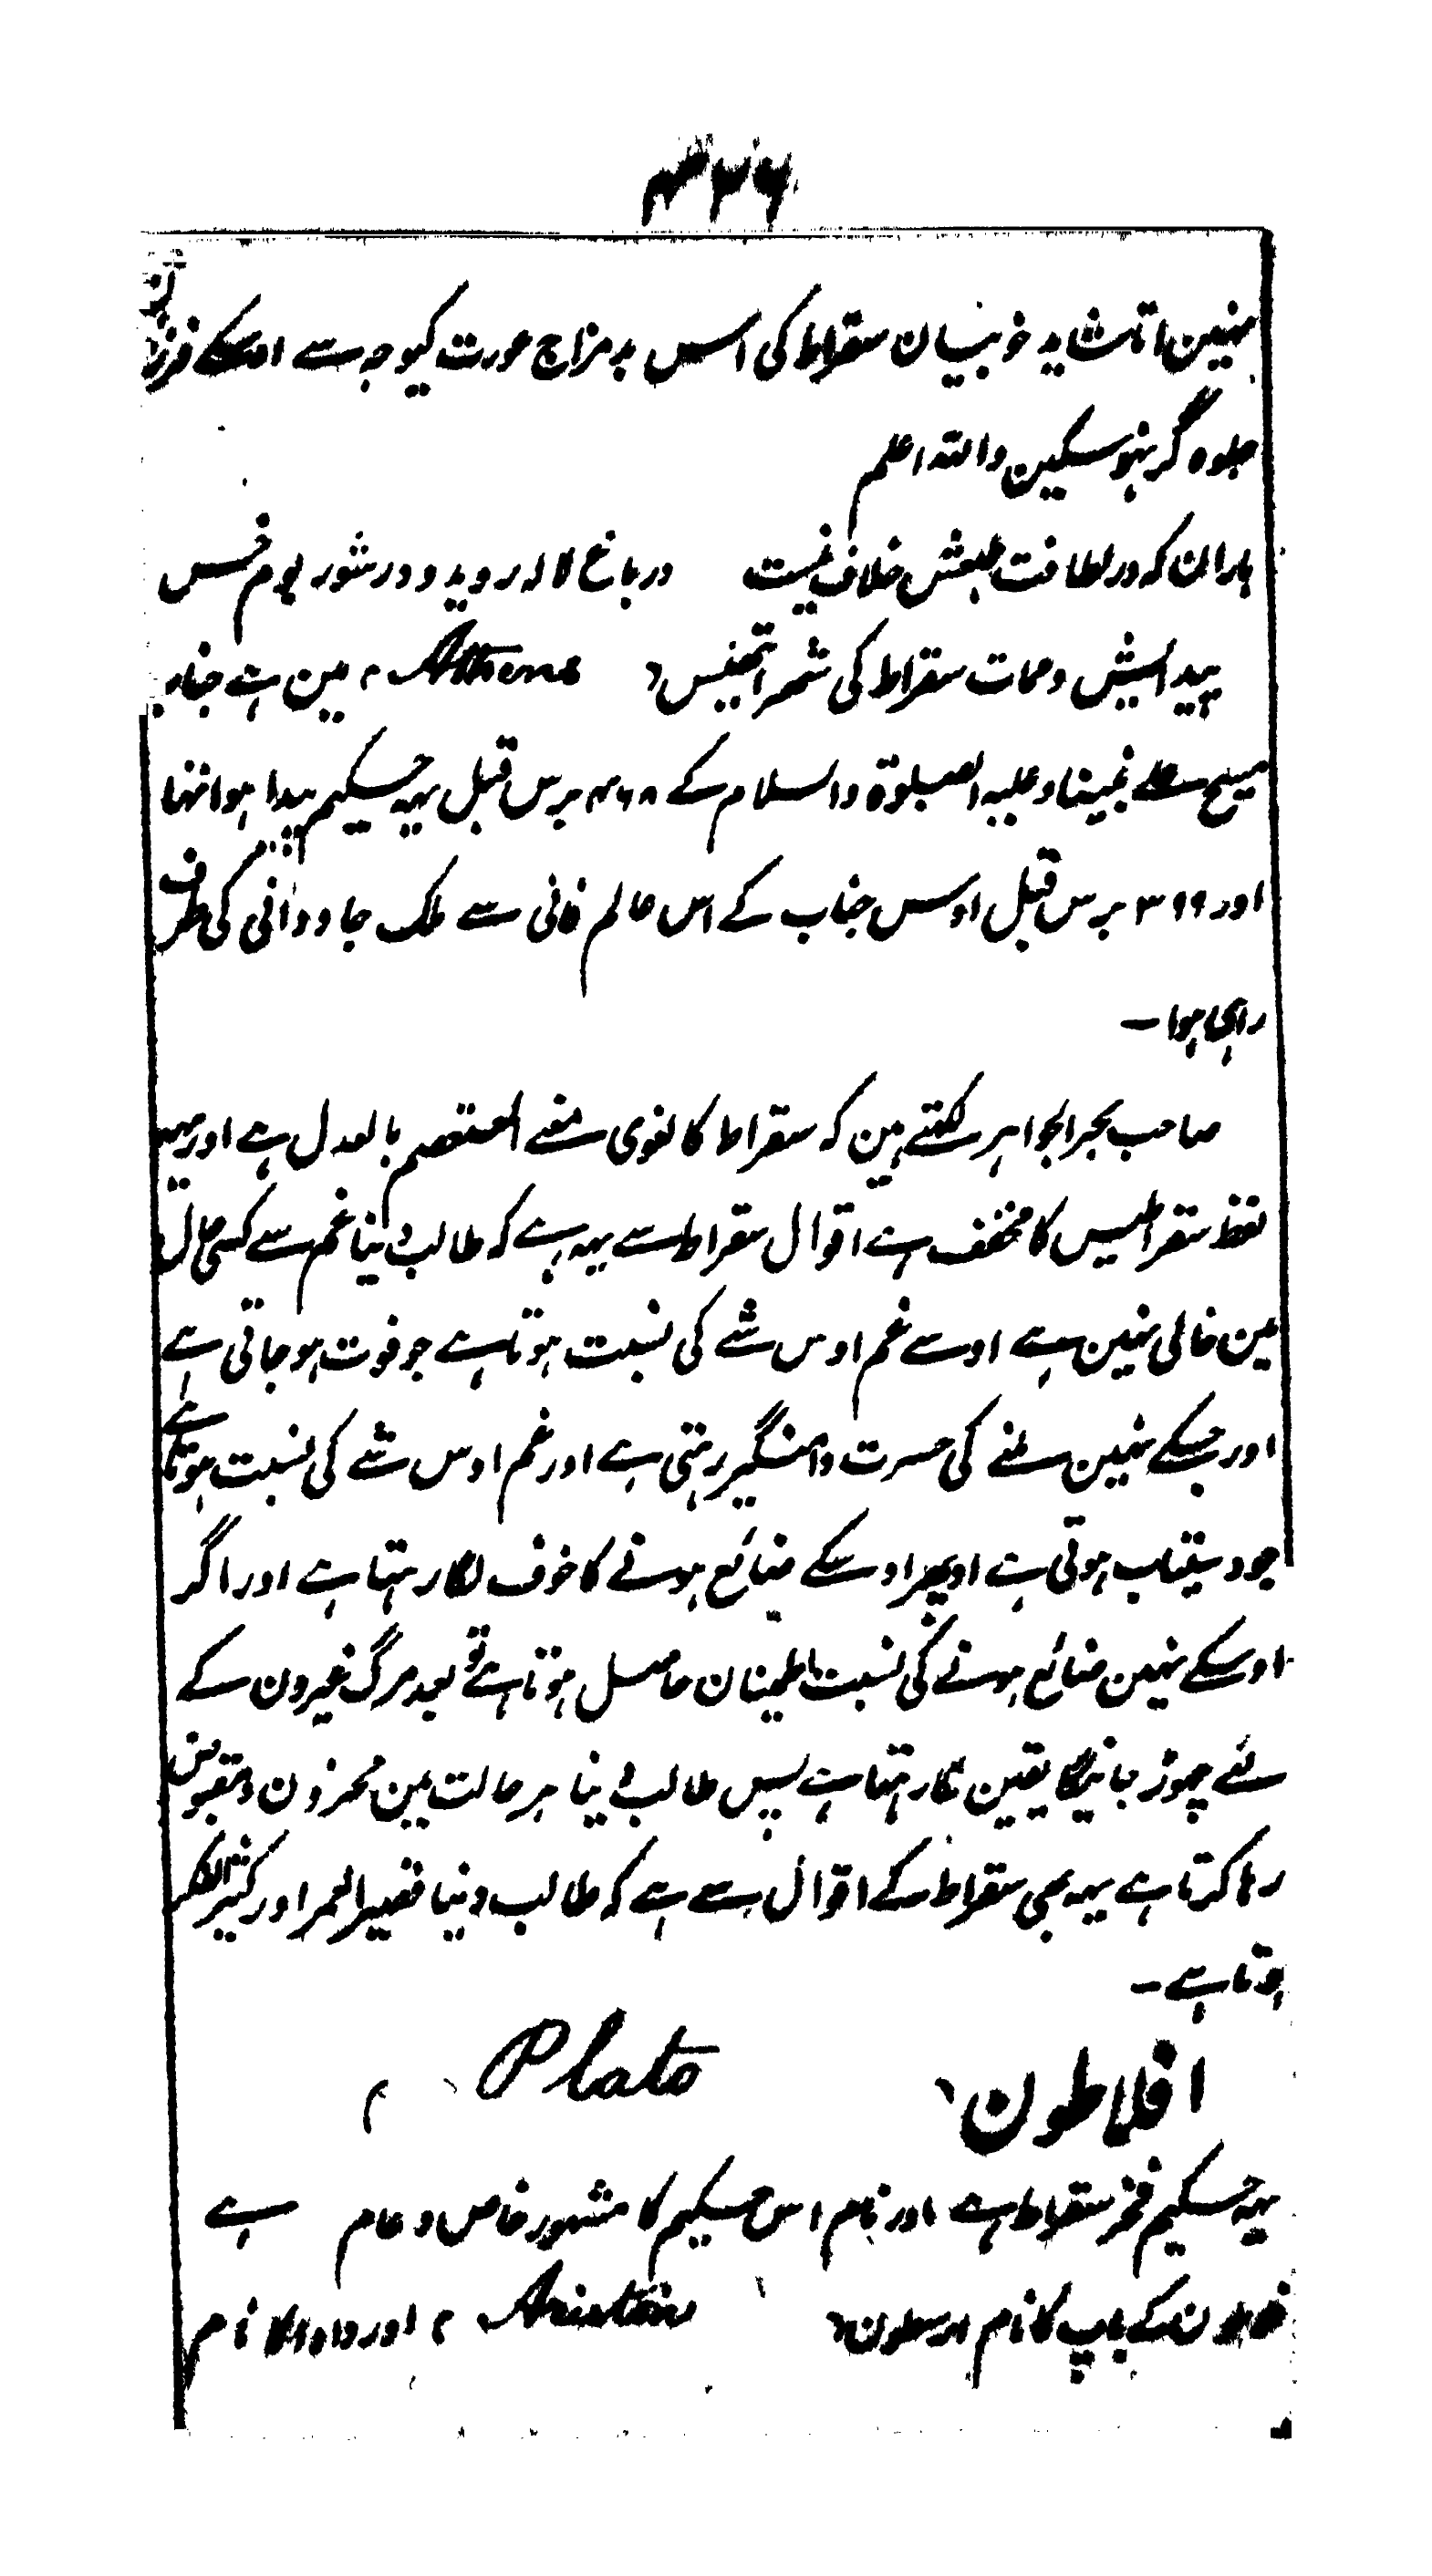 ۴۲۶
نہین اتا شاید خوبیان سقراط کی اسس بد مزاج عورت کیوجہ سے اوسکے فرزندون
جلوہ گر نہو سکین واللہ اعلم
باران کہ در لطافت طبعش خلاف نیست در باغ لالہ روید و در شور بوم خس
پیدایش و ممات سقراط کی شہر اتھینس (Athens) مین ہے جناب
مسیح علے نبینا و علیہ الصلوۃ والسلام کے ۴۶۸ برس قبل یہہ حکیم پیدا ہوا تہا
اور ۳۹۹ برس قبل اوس جناب کے اس عالم فانی سے ملک جاودانی کی طرف
راہی ہوا ۔
صاحب بحر الجواہر لکہتے ہین کہ سقراط کا لغوی معنے المعتصم بالعدل ہے اور یہہ
لفظ سقراطیس کا مخفف ہے اقوال سقراط سے یہہ ہے کہ طالب دنیا غم سے کسی حال
مین خالی نہین ہے اوسے غم اوس شے کی نسبت ہوتا ہے جو فوت ہو جاتی ہے
اور جسکے نہین ملنے کی حسرت دامنگیر رہتی ہے اور غم اوس شے کی نسبت ہوتا ہے
جو دستیاب ہوتی ہے اور پھر اوسکے ضائع ہونے کا خوف لگا رہتا ہے اور اگر
اوسکے نہین ضائع ہونے کی نسبت اطمینان حاصل ہوتا ہے تو بعد مرگ غیرون کے
لئے چھوڑ جانیکا یقین لگا رہتا ہے پس طالب دنیا ہر حالت مین محزون و مقبوض
رہا کرتا ہے یہہ بھی سقراط کے اقوال سے ہے کہ طالب دنیا قصیر العمر اور کثیر الفکر
ہوتا ہے ۔
افلاطون (Plato)
یہہ حکیم فخر سقراط ہے اور نام اس حکیم کا مشہور خاص و عام ہے
کے باپ کا نام ارسطون (Ariston) اور دادا کا نام